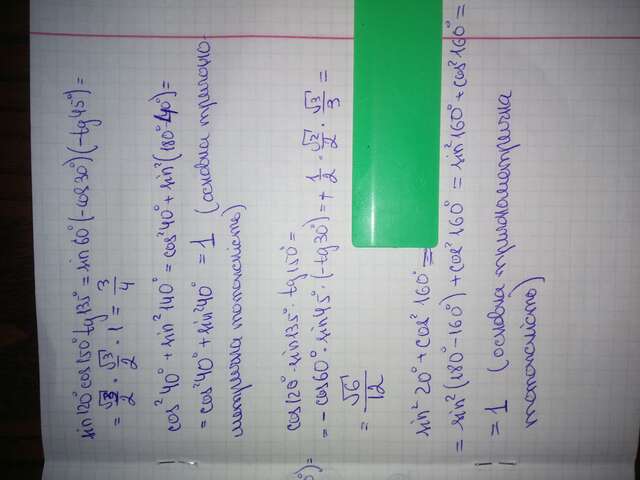 sin120° cos150° tg135° = sin60°(-cos30°)(-tg45°) =
= √3/2 · √3/2 · 1 = 3/4
cos²40° + sin²140° = cos²40° + sin²(180°-40°) =
= cos²40° + sin²40° = 1 (основна тригоно-
метрична тотожність)
cos120° · sin135° · tg150° =
= -cos60° · sin45° · (-tg30°) = + 1/2 · √2/2 · √3/3 =
= √6/12
sin²20° + cos²160° =
= sin²(180°-160°) + cos²160° = sin²160° + cos²160° =
= 1 (основна тригонометрична
тотожність)